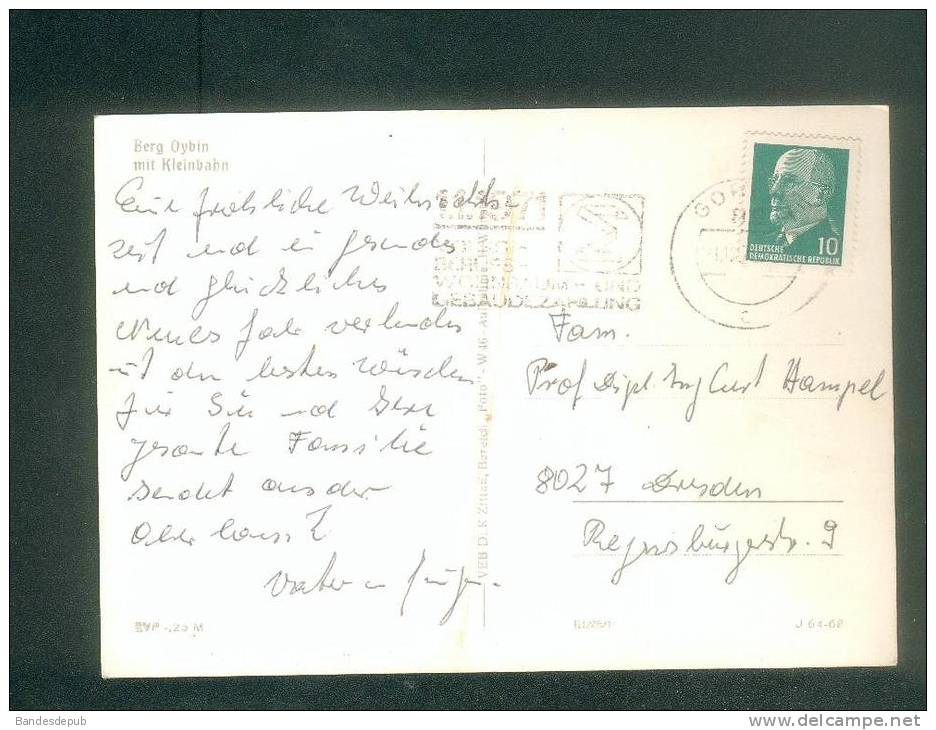 Berg Oybin
mit Kleinbahn
Eine fröhliche Weihnachts-
zeit und ein gesundes
und glückliches
Neues Jahr verbunden
mit den besten Wünschen
für Sie und Ihre
gesamte Familie
sendet aus der
Oberlausitz
Vater u.
EVP -,25 M
VEB D. K Zittau, Bereich „Foto" - W 46 -
1.1.1971
WOHNRAUM- UND
GEBÄUDEZÄHLUNG
GÖR
c
DEUTSCHE
DEMOKRATISCHE REPUBLIK
10
Fam.
Prof Dipl. Ing Curt Hampel
8027 Dresden
Regensburgerstr. 9
J 64-68
Bandesdepub
www.delcampe.net